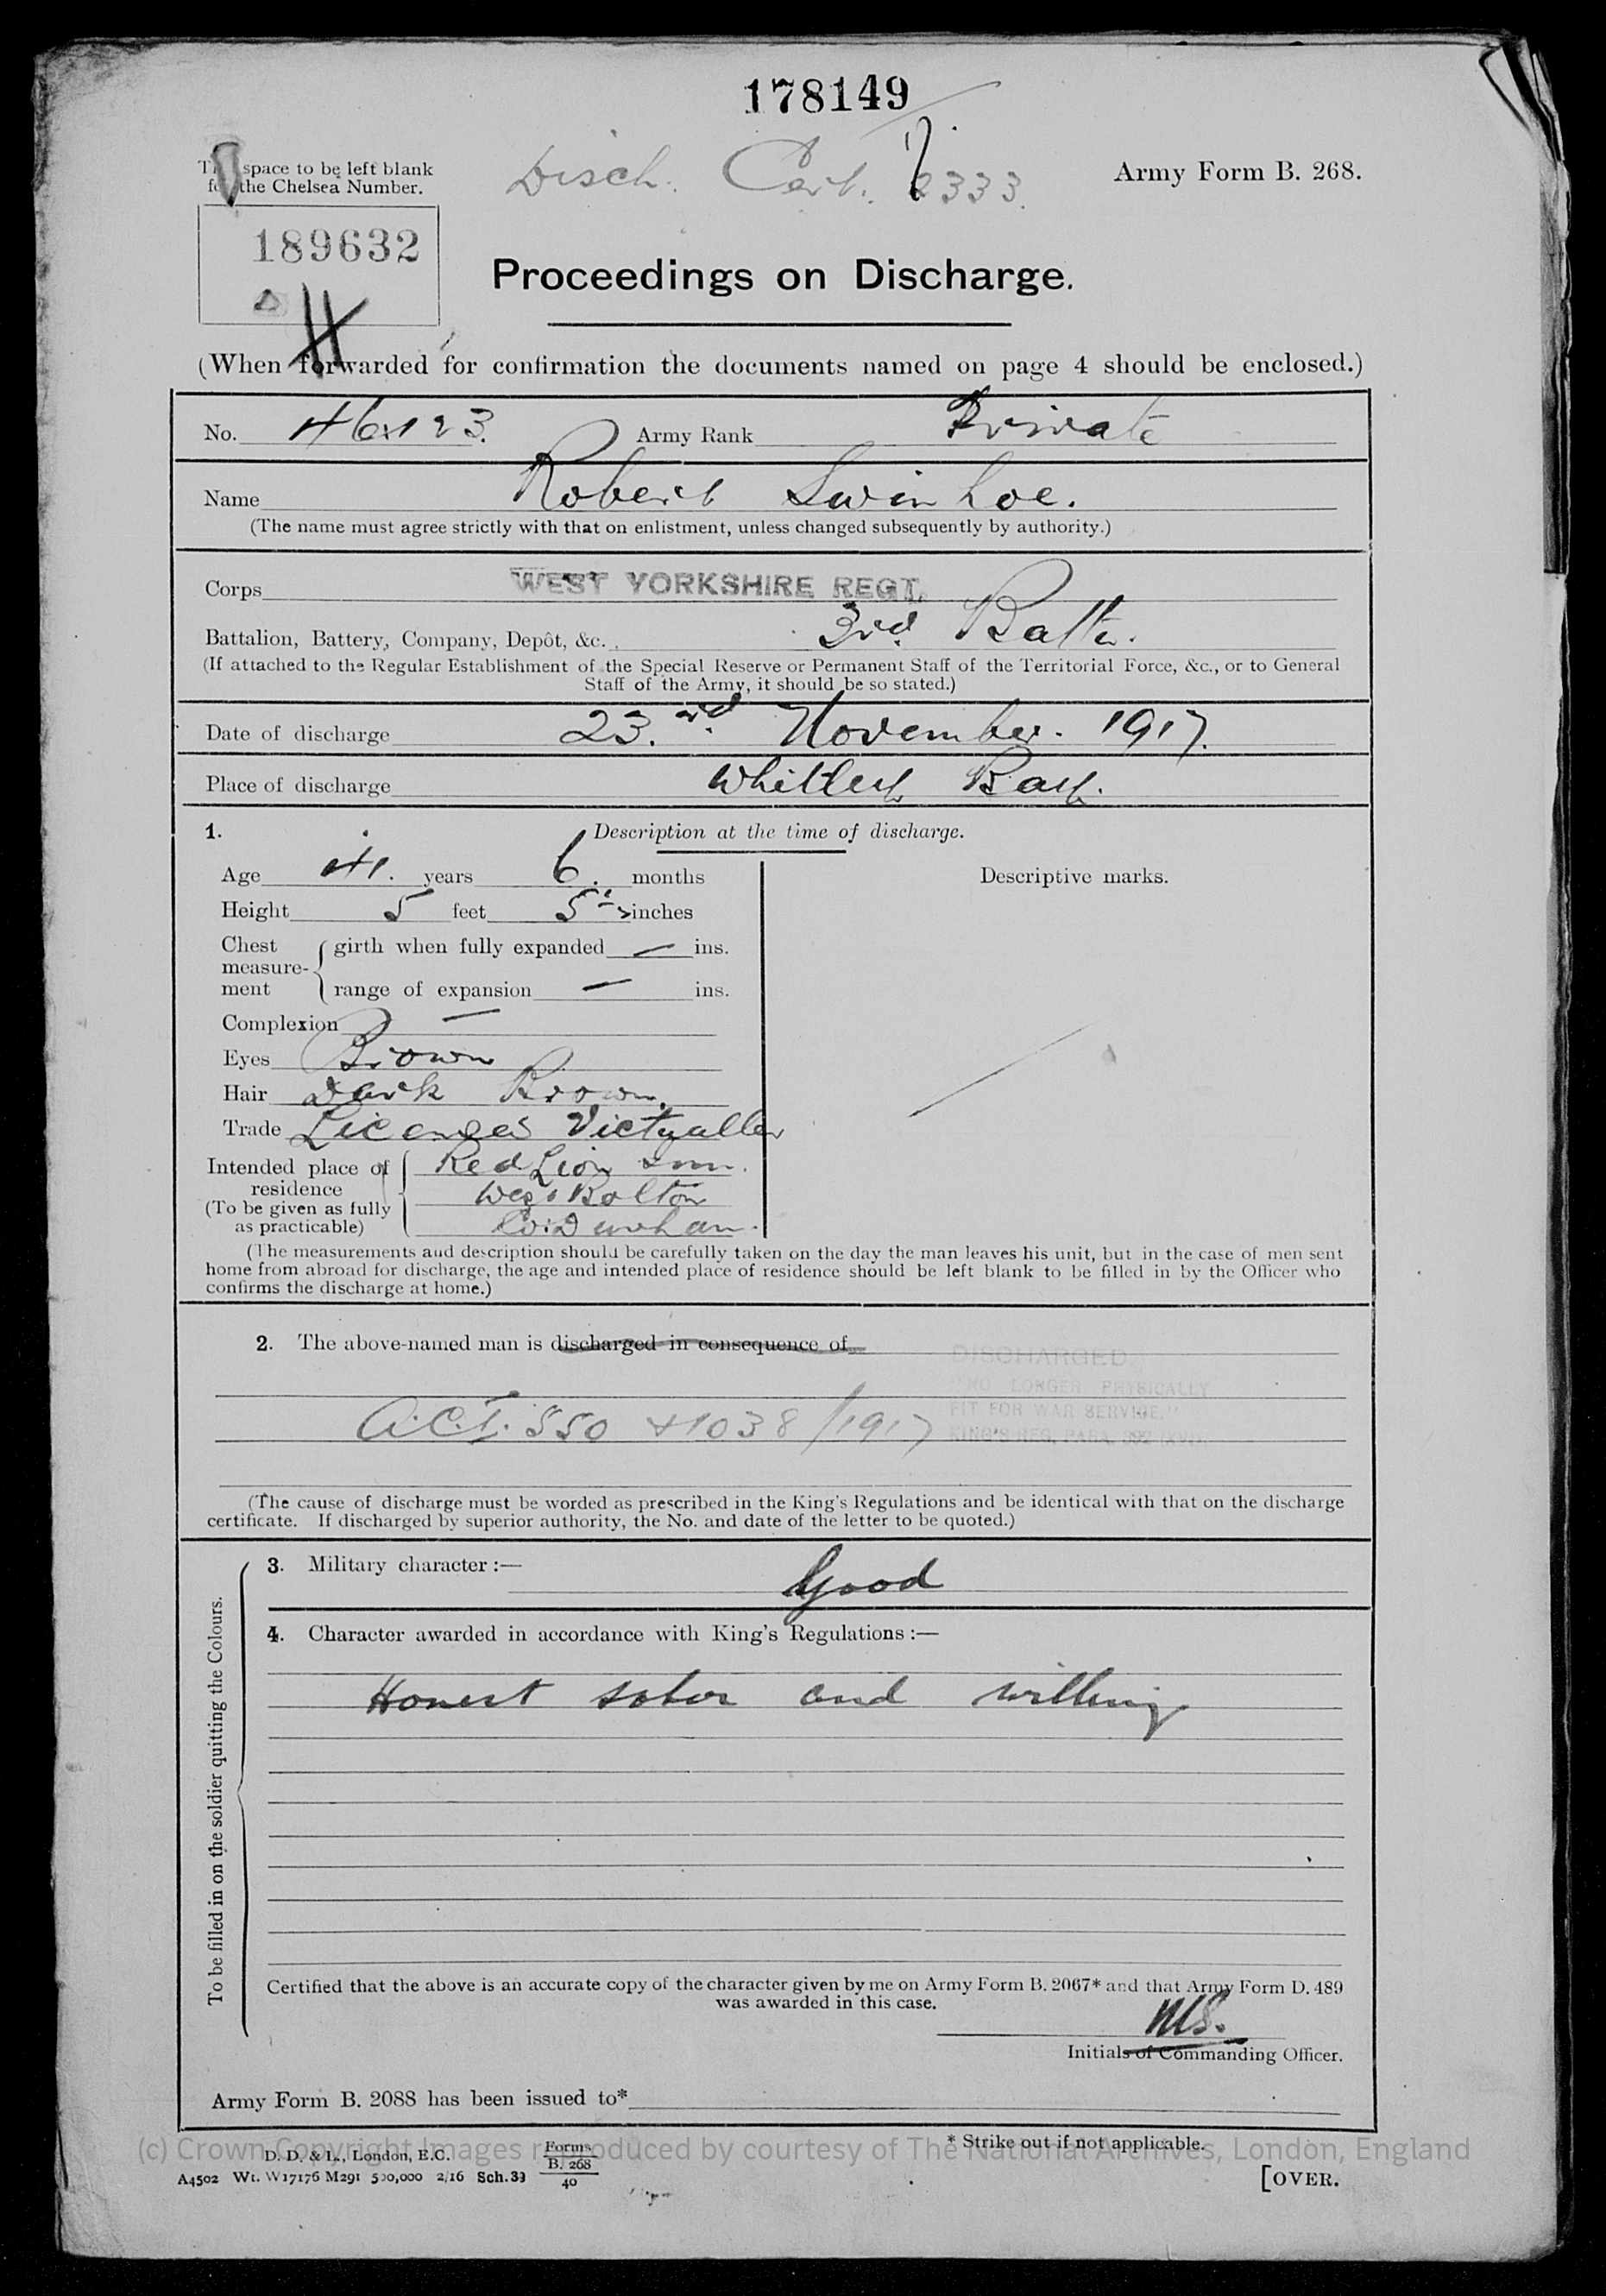 178149
space to be left blank
the Chelsea Number.
Disch. Cert. 2333.
Army Form B. 268.
189632
Proceedings on Discharge.
(When forwarded for confirmation the documents named on page 4 should be enclosed.)
No. Army Rank Private
Name Robert Swinhoe.
(The name must agree strictly with that on enlistment, unless changed subsequently by authority.)
Corps WEST YORKSHIRE REGT.
Battalion, Battery, Company, Depôt, &c. 3rd Battn.
(If attached to the Regular Establishment of the Special Reserve or Permanent Staff of the Territorial Force, &c., or to General
Staff of the Army, it should be so stated.)
Date of discharge 23.rd November. 1917.
Place of discharge Whitley Bay.
1. Description at the time of discharge.
Age 41. years 6. months
Descriptive marks.
Height 5 feet 5 inches
Chest measurement { girth when fully expanded — ins.
range of expansion — ins.
Complexion —
Eyes Brown
Hair Dark Brown.
Trade Licenced Victualler
Intended place of residence (To be given as fully as practicable) { Red Lion Inn.
West Bolton
Co: Durham.
(The measurements and description should be carefully taken on the day the man leaves his unit, but in the case of men sent
home from abroad for discharge, the age and intended place of residence should be left blank to be filled in by the Officer who
confirms the discharge at home.)
2. The above-named man is discharged in consequence of
DISCHARGED.
"NO LONGER PHYSICALLY
FIT FOR WAR SERVICE."
KING'S REG. PARA. 392 (XVI).
A.C.I. 550 & 1038/1917
(The cause of discharge must be worded as prescribed in the King's Regulations and be identical with that on the discharge
certificate. If discharged by superior authority, the No. and date of the letter to be quoted.)
To be filled in on the soldier quitting the Colours.
3. Military character :— Good
4. Character awarded in accordance with King's Regulations :—
Honest sober and willing
Certified that the above is an accurate copy of the character given by me on Army Form B. 2067* and that Army Form D. 489
was awarded in this case.
Initials of Commanding Officer.
Army Form B. 2088 has been issued to*
* Strike out if not applicable.
(c) Crown Copyright Images reproduced by courtesy of The National Archives, London, England
D. D. & L., London, E.C.
A4502 Wt. W17176 M291 500,000 2/16 Sch. 33
Forms
B. 268
40
[OVER.